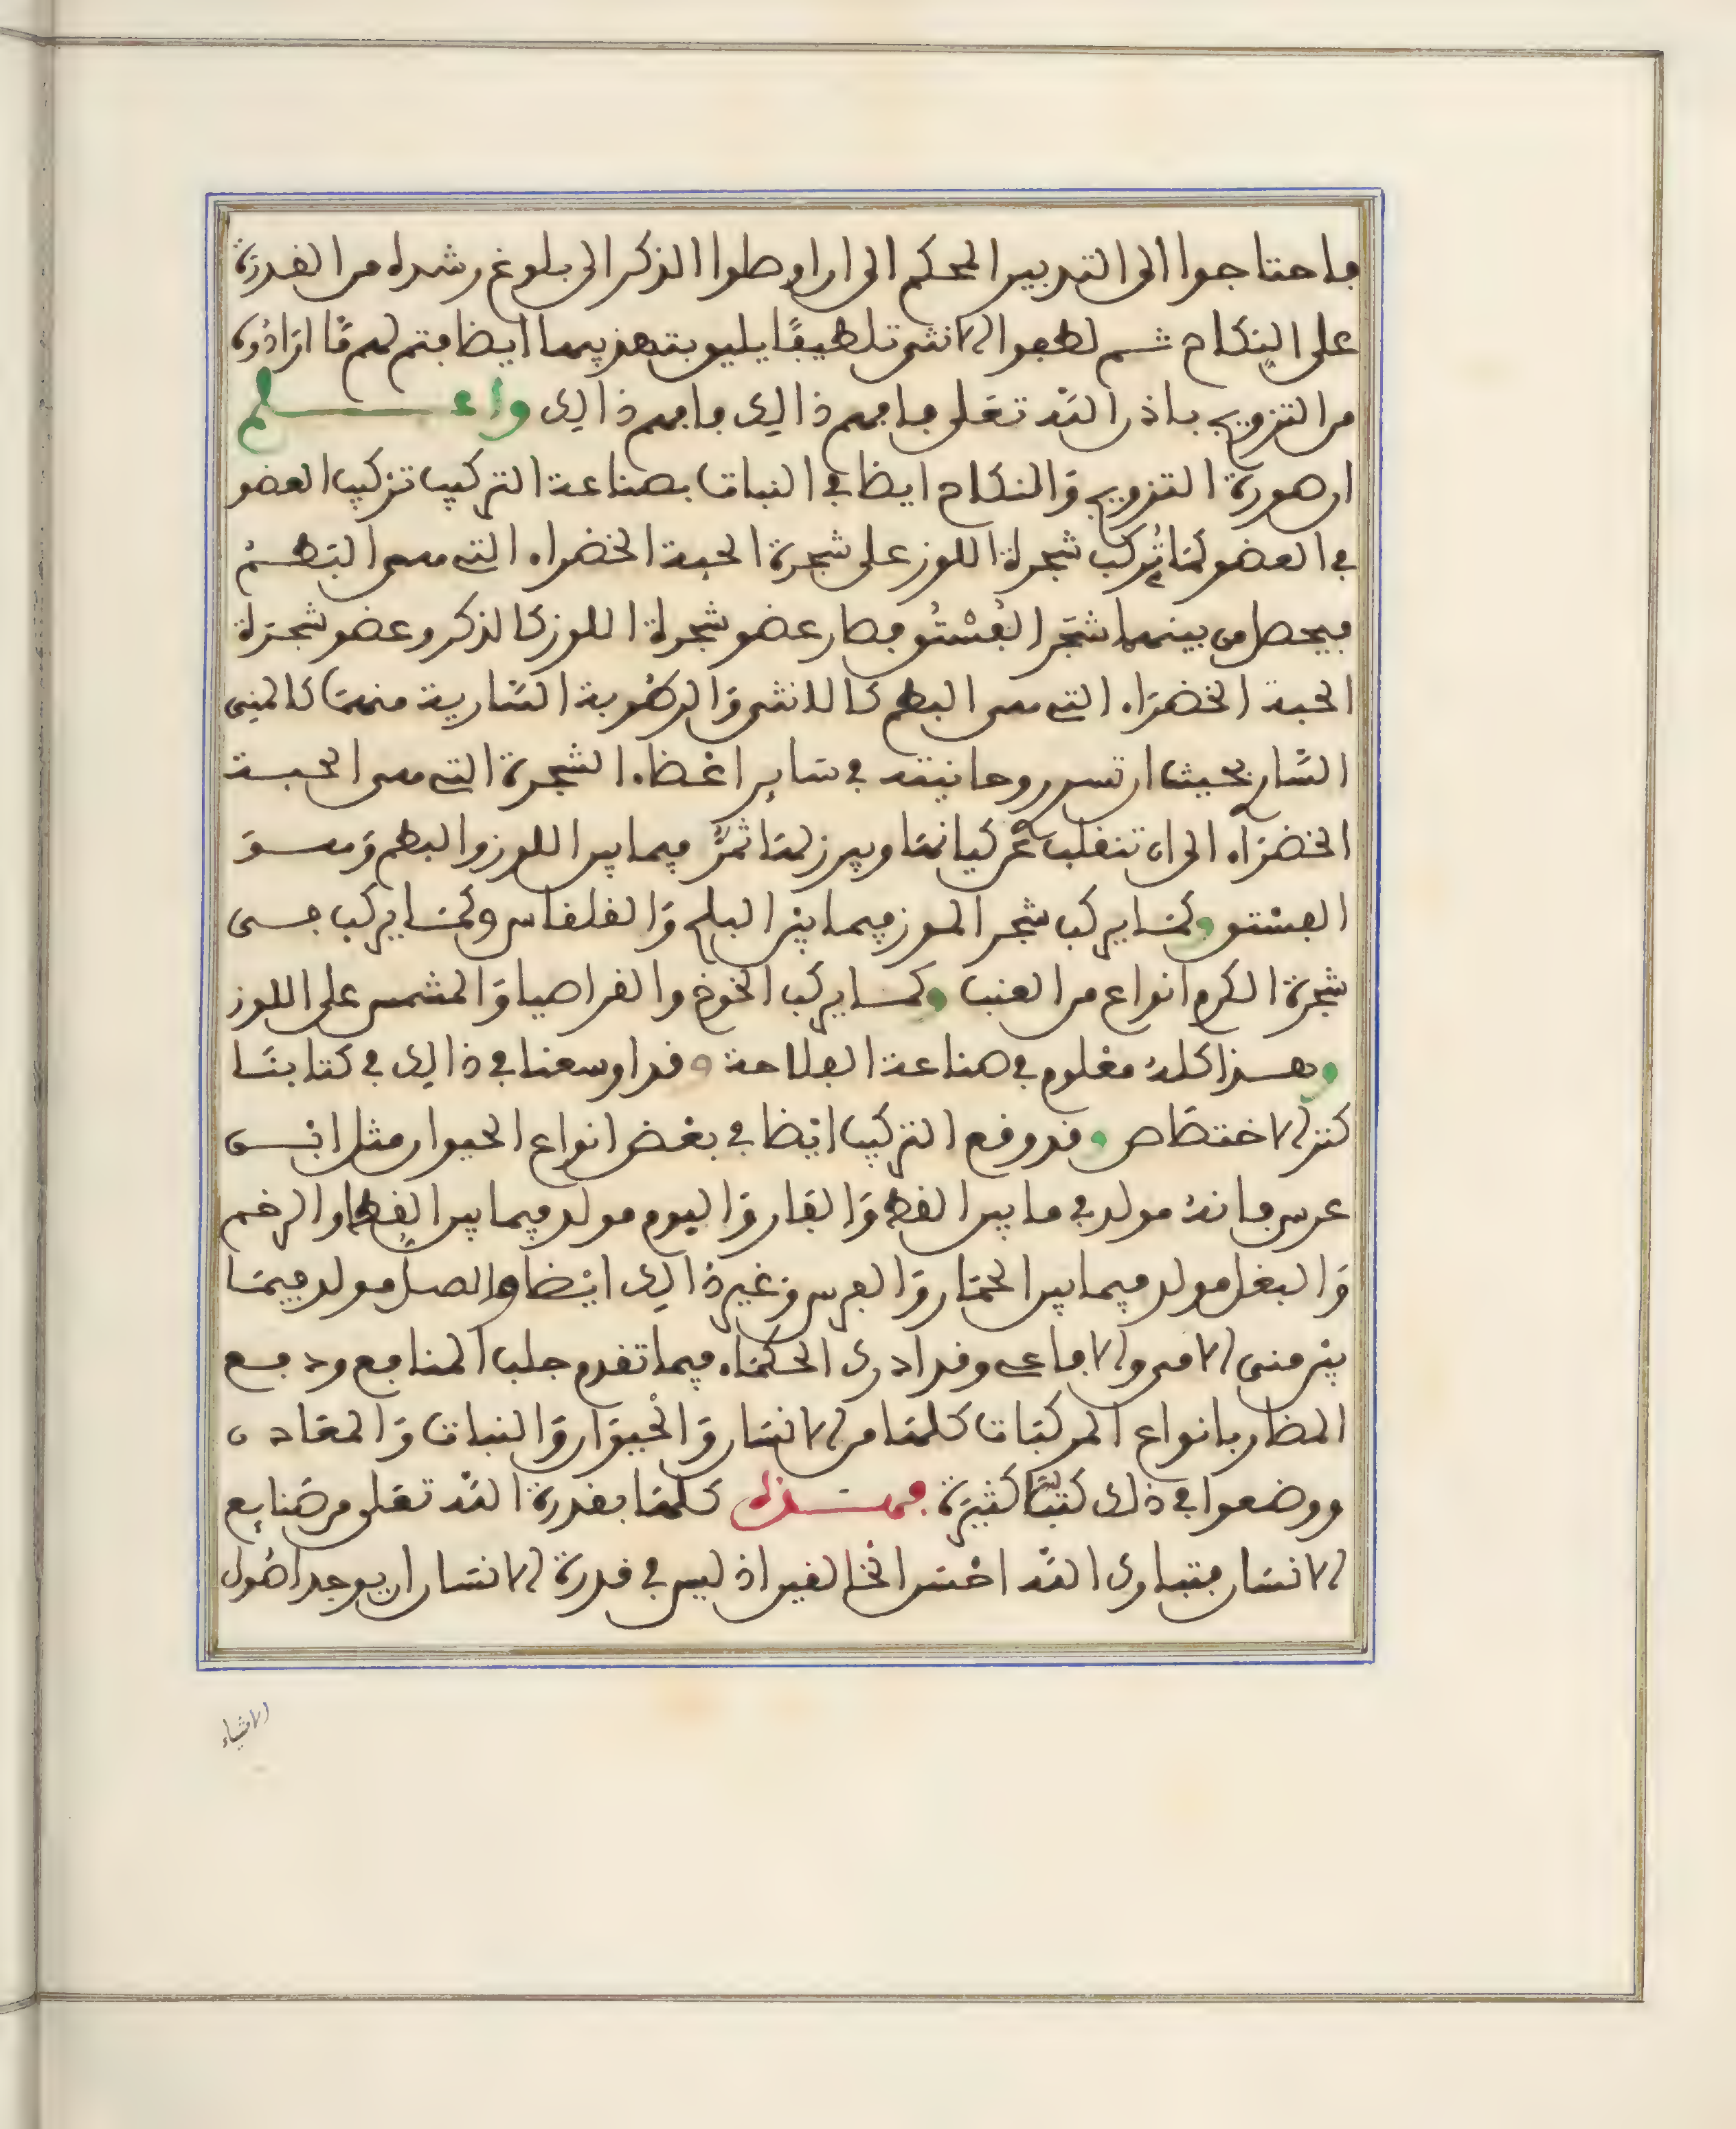 فاحتاجوا الى التدبير المحكم الى ان اوصلوا الذكر الى بلوغ رشده من القدرة
على النكاح ثم لطفوا الانثى تلطيفًا يليق بتهذيبها ايضا فتم لهم مَّا ارَادُوه
من التزويج باذن الله تعلى فافهم ذالك فافهم ذالك واعلم
ان صورة التزويج وَالنكاح ايضا في النبات بصناعة التركيب تركيب العضو
في العضو كمَا يُركب شجرة اللوز على شجرة الحبة الخضراء التي هي البَطم
فيحصل من بينهما شجَر الفُسْتُق فصار عضو شجرة اللوز كالذكر وعضو شجَرة
الحبة الخضرَاء التي هي البطم كالانثى وَالرطُوبة السَّارية منهَا كالمني
السَّاري بحيث ان تسر روحانيته في سَاير اعْضاء الشجرة التي هي الحبة
الخضرَاء الى ان تنقلب عَن كيانهَا ويبرز لهَا ثمَرٌ فيما بين اللوز والبطم وَهو
الفسْتق وكمَا يركب شجر الموز فيما بيْن البلح وَالقلقاس وكمَا يركب في
شجرة الكرم انواع من العنب وكما يركب الخوخ والقراصيا وَالمشمس على اللوز
وهذا كلهُ معْلوم في صناعة الفلاحة وقد اوسعنا في ذالك في كتابنَا
كنز الاختصَاص وقد وقع التركيب ايْضا في بعْض انواع الحيوان مثل ابْن
عرس فانهُ مولد في ما بين القط وَالفَار وَاليوم مولد فيما بين القِطَ والرخم
وَالبغل مولد فيما بين الحمَار وَالفرس وَغير ذالك ايْضا والصل مولد فيمَا
بيْن مني الامير والافاعي وقد ادرك الحكمَاء فيما تقدم جلب المنافع ودفع
المضار بانواع المركبَات كلهَا من الانسَان وَالحْيوَان وَالنبات وَالمعَادن
ووضعوا في ذلك كتبًا كثيرَة فهذه كلهَا بقدرة اللَّه تعَلى من صَنايع
الانسَان فتبارك اللَّه احْسَن الخَالقين اذ ليس في قدرة الانسَان ان يوجد اصُول
الاشياء